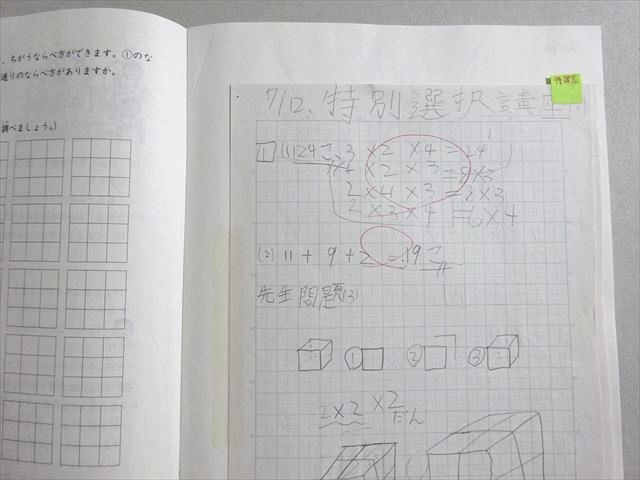 、ちがうならべ方ができます。①のな
通りのならべ方がありますか。
調べましょう。）
7/12、特別選択講座
1 (1) 24こ、3×2×4=24
4×2×3=8×3
2×4×3=8×3
2×3×4=6×4
(2) 11+9+2=19こ
先生問題(3)
① ② ③
2×2×2だん